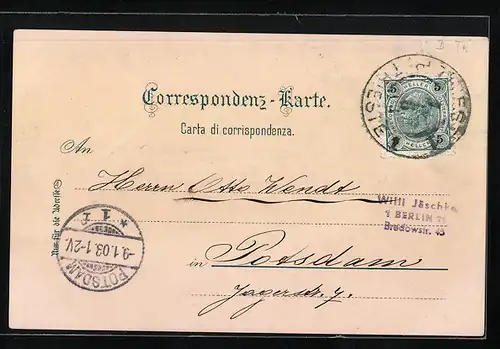 Correspondenz-Karte.
Carta di corrispondenza.
An
Herrn Otto Wendt
in Potsdam
Jägerstr. 7.
Nur für die Adresse
5 5
5 5
TRIESTE
Willi Jäschke
1 BERLIN
Bredowstr. 43
POTSDAM
-9.1.03.1-2V.
* 1 f